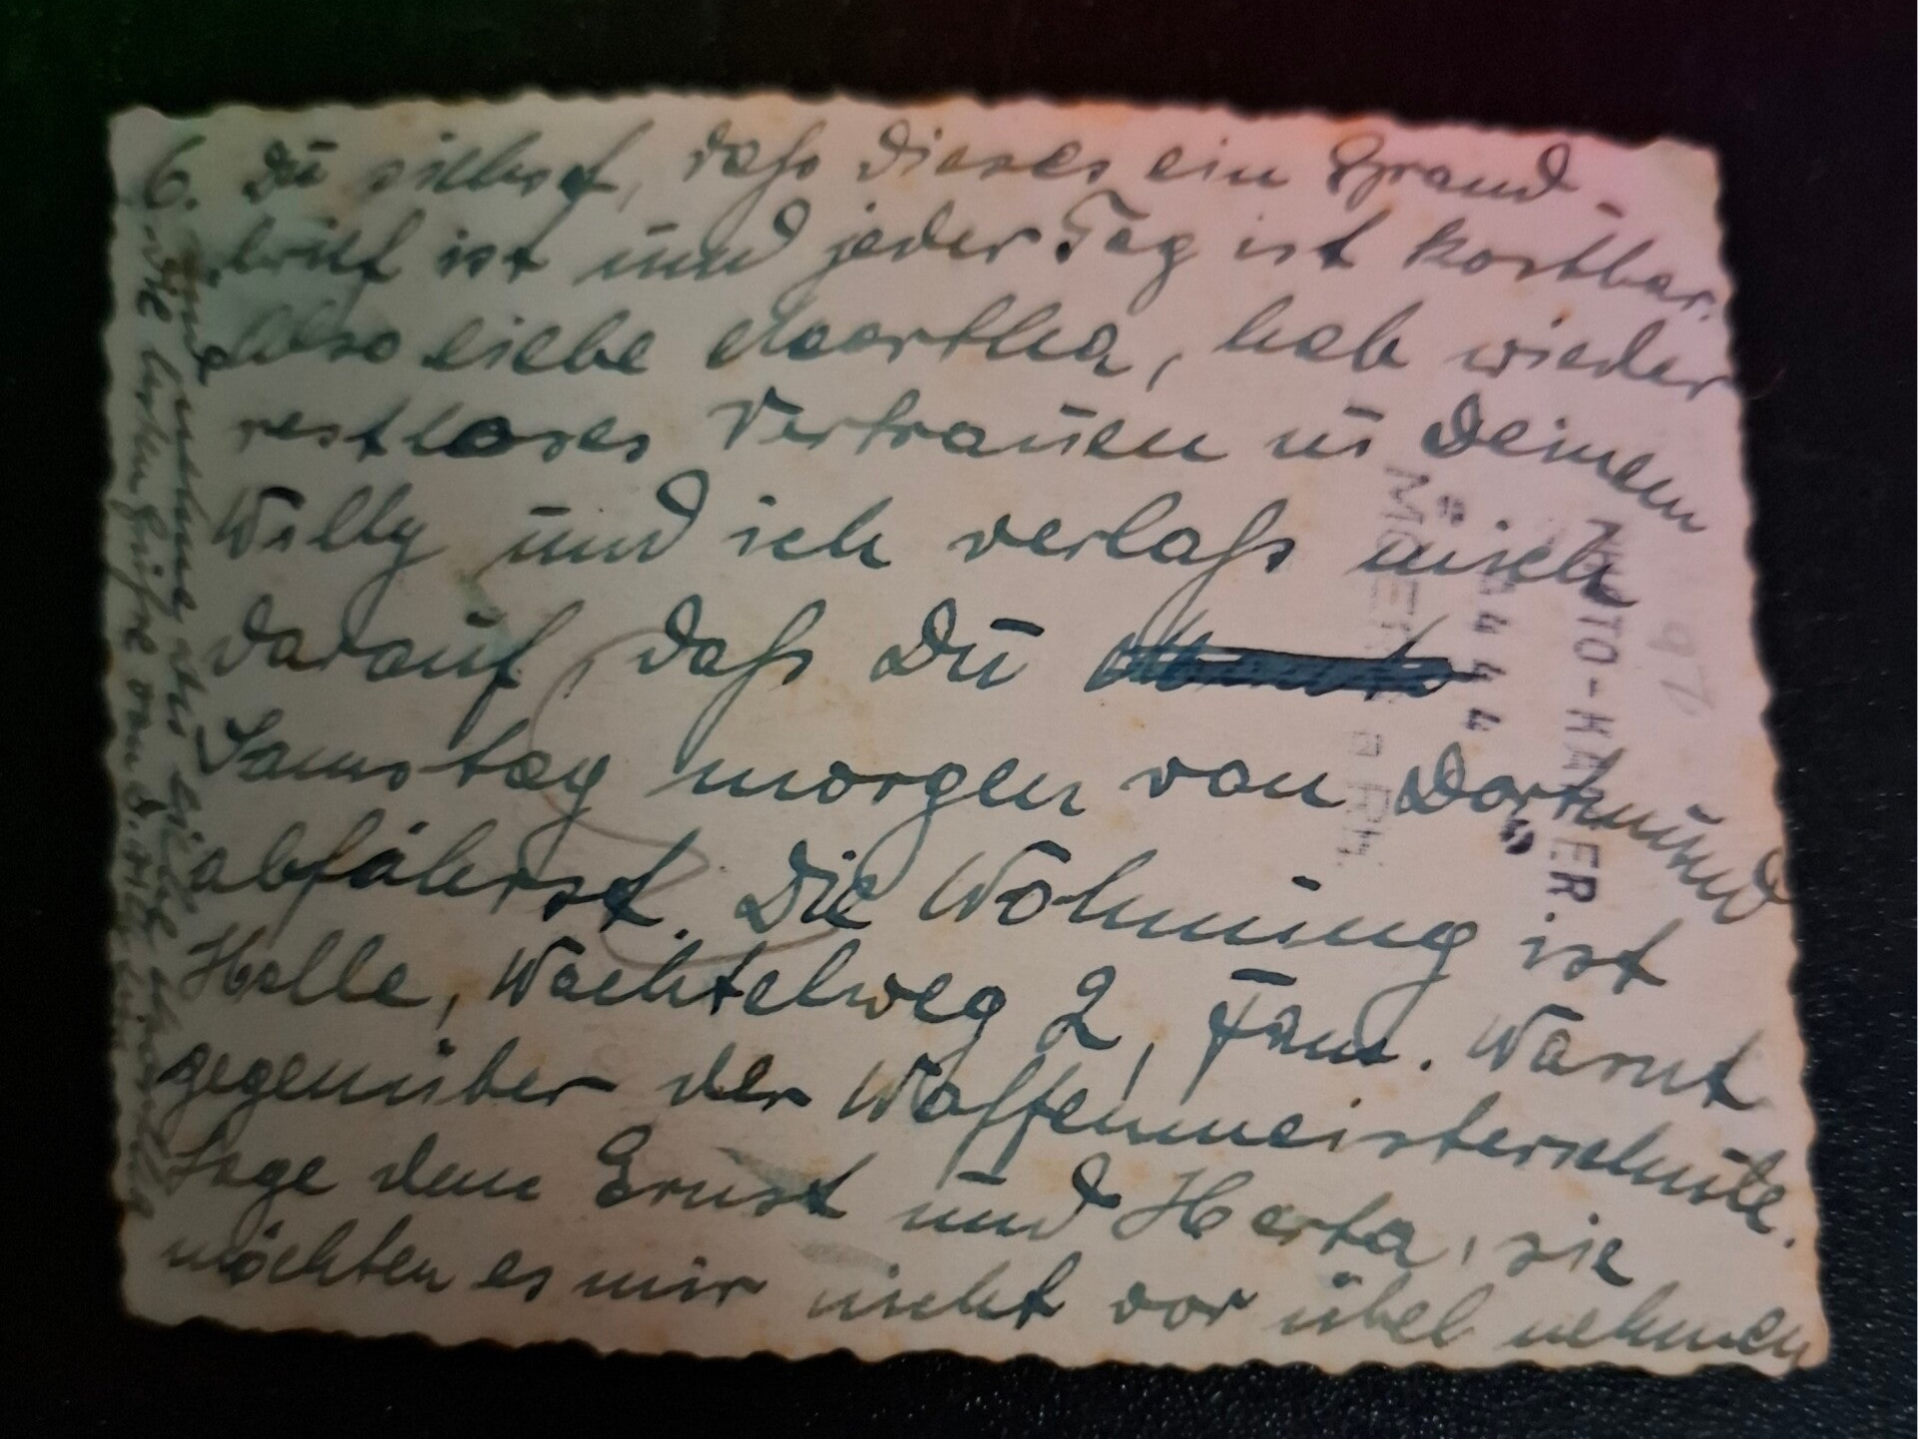 6. Du siehst, dass dieses ein Brand-
brief ist und jeder Tag ist kostbar.
Also liebe Martha, hab wieder
restloses Vertrauen in Deinem
Willy und ich verlass mich
darauf, dass Du
Samstag morgen von Dortmund
abfährst. Die Wohnung ist
Halle, Wachtelweg 2, Fam.
gegenüber der Waffenmeisterschule.
Sage dem Ernst und Herta, sie
möchten es mir nicht vor übel nehmen
Die besten Grüße von
PHOTO-HAMMER
4444